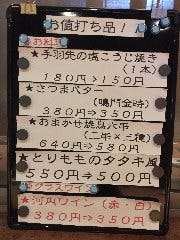 お値打ち品！
★手羽先の塩こうじ焼き
（1本）
180円⇒150円
★さつまバター
（鳴門金時）
380円⇒350円
★おまかせ焼鳥六本
580円⇒550円
★とりもものタタキ風
550円⇒500円
グラスワイン
★河内ワイン（赤・白）
380円⇒350円